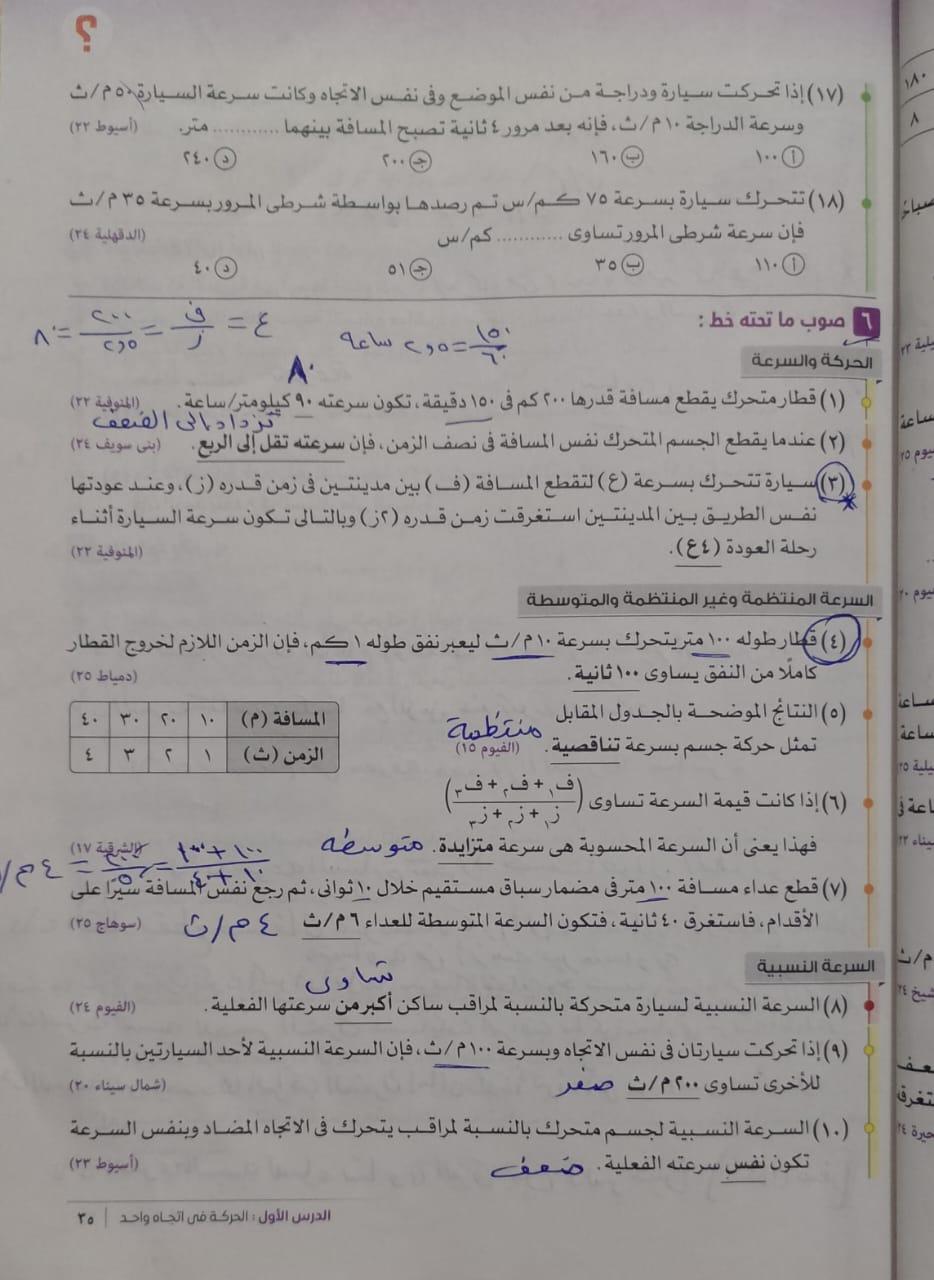 ؟
(١٧) إذا تحركت سيارة ودراجة من نفس الموضع وفى نفس الاتجاه وكانت سرعة السيارة ٥٠ م/ث
وسرعة الدراجة ١٠ م/ث، فإنه بعد مرور ٤ ثانية تصبح المسافة بينهما ............ متر. (أسيوط ٢٢)
أ ١٠٠ ب ١٦٠ ج ٢٠٠ د ٢٤٠
(١٨) تتحرك سيارة بسرعة ٧٥ كم/س تم رصدها بواسطة شرطى المرور بسرعة ٣٥ م/ث
فإن سرعة شرطى المرور تساوى ............ كم/س (الدقهلية ٢٤)
أ ١١٠ ب ٣٥ ج ٥١ د ٤٠
٦ صوب ما تحته خط :
ع = ف/ز = ٢٠٠/٢,٥ = ٨٠
١٥٠/٦٠ = ٢,٥ ساعة
الحركة والسرعة
٨٠
(١) قطار متحرك يقطع مسافة قدرها ٢٠٠ كم فى ١٥٠ دقيقة، تكون سرعته ٩٠ كيلومتر/ساعة. (المنوفية ٢٢)
تزداد إلى الضعف
(٢) عندما يقطع الجسم المتحرك نفس المسافة فى نصف الزمن، فإن سرعته تقل إلى الربع. (بنى سويف ٢٤)
(٣) سيارة تتحرك بسرعة (ع) لتقطع المسافة (ف) بين مدينتين فى زمن قدره (ز)، وعند عودتها
نفس الطريق بين المدينتين استغرقت زمن قدره (٢ز) وبالتالى تكون سرعة السيارة أثناء
رحلة العودة (٤ع). (المنوفية ٢٢)
السرعة المنتظمة وغير المنتظمة والمتوسطة
(٤) قطار طوله ١٠٠ متر يتحرك بسرعة ١٠ م/ث ليعبر نفق طوله ١ كم، فإن الزمن اللازم لخروج القطار
كاملًا من النفق يساوى ١٠٠ ثانية. (دمياط ٢٥)
(٥) النتائج الموضحة بالجدول المقابل
منتظمة
تمثل حركة جسم بسرعة تناقصية. (الفيوم ١٥)
المسافة (م) ١٠ ٢٠ ٣٠ ٤٠
الزمن (ث) ١ ٢ ٣ ٤
(٦) إذا كانت قيمة السرعة تساوى (ف١ + ف٢ + ف٣ / ز١ + ز٢ + ز٣)
فهذا يعنى أن السرعة المحسوبة هى سرعة متزايدة. متوسطة (الشرقية ١٧)
(٧) قطع عداء مسافة ١٠٠ متر فى مضمار سباق مستقيم خلال ١٠ ثوانى، ثم رجع نفس المسافة سيرًا على
الأقدام، فاستغرق ٤٠ ثانية، فتكون السرعة المتوسطة للعداء ٦ م/ث ٤ م/ث (سوهاج ٢٥)
السرعة النسبية
تساوى
(٨) السرعة النسبية لسيارة متحركة بالنسبة لمراقب ساكن أكبر من سرعتها الفعلية. (الفيوم ٢٤)
(٩) إذا تحركت سيارتان فى نفس الاتجاه وبسرعة ١٠٠ م/ث، فإن السرعة النسبية لأحد السيارتين بالنسبة
للأخرى تساوى ٢٠٠ م/ث صفر (شمال سيناء ٢٠)
(١٠) السرعة النسبية لجسم متحرك بالنسبة لمراقب يتحرك فى الاتجاه المضاد وبنفس السرعة
تكون نفس سرعته الفعلية. ضعف (أسيوط ٢٣)
الدرس الأول : الحركة فى اتجاه واحد | ٣٥